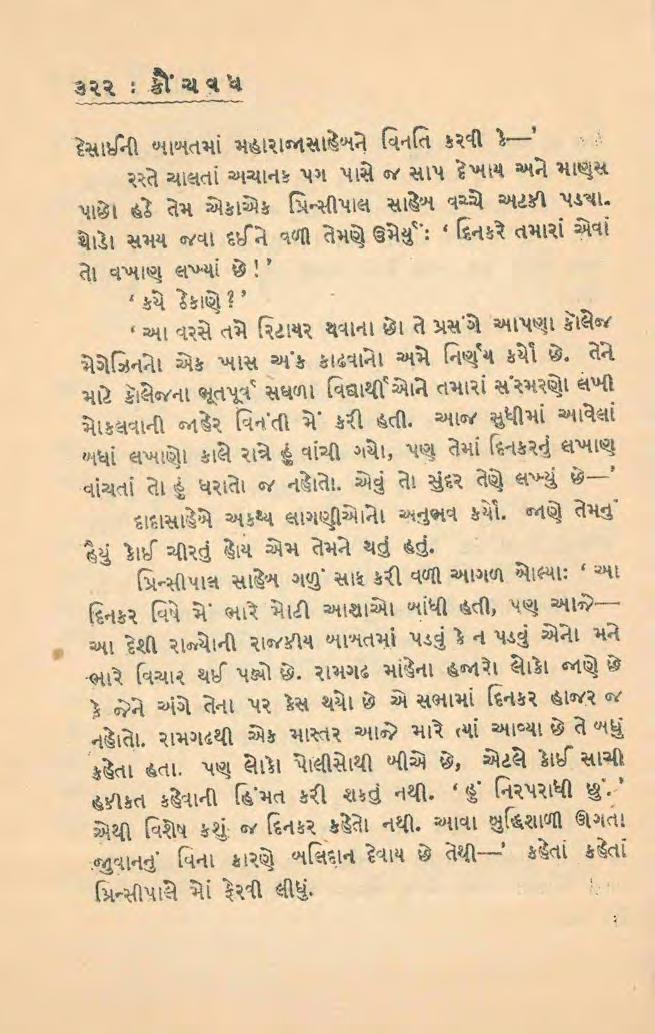 ૩૨૨ : ક્રૌંચવધ
દેસાઈની બાબતમાં મહારાજાસાહેબને વિનતિ કરવી કે—’
રસ્તે ચાલતાં અચાનક પગ પાસે જ સાપ દેખાય અને માણસ
પાછો હઠે તેમ એકાએક પ્રિન્સીપાલ સાહેબ વચ્ચે અટકી પડયા.
થોડો સમય જવા દઈને વળી તેમણે ઉમેર્યું: ‘ દિનકરે તમારાં એવાં
તો વખાણ લખ્યાં છે!’
‘ કયે ઠેકાણે?’
‘ આ વરસે તમે રિટાયર થવાના છો તે પ્રસંગે આપણા કૉલેજ
મેગેઝિનનો એક ખાસ અંક કાઢવાનો અમે નિર્ણય કર્યો છે. તેને
માટે કૉલેજના ભૂતપૂર્વ સઘળા વિદ્યાર્થીઓને તમારાં સંસ્મરણો લખી
મોકલવાની જાહેર વિનંતી મેં કરી હતી. આજ સુધીમાં આવેલાં
બધાં લખાણો કાલે રાત્રે હું વાંચી ગયો, પણ તેમાં દિનકરનું લખાણ
વાંચતાં તો હું ધરાતો જ નહોતો. એવું તો સુંદર તેણે લખ્યું છે—’
દાદાસાહેબે અકથ્ય લાગણીઓનો અનુભવ કર્યો. જાણે તેમનું
હૈયું કોઈ ચીરતું હોય એમ તેમને થતું હતું.
પ્રિન્સીપાલ સાહેબ ગળું સાફ કરી વળી આગળ બોલ્યાઃ ‘ આ
દિનકર વિષે મેં ભારે મોટી આશાઓ બાંધી હતી, પણ આજે—
આ દેશી રાજ્યોની રાજકીય બાબતમાં પડવું કે ન પડવું એનો મને
ભારે વિચાર થઈ પડ્યો છે. રામગઢ માંહેના હજારો લોકો જાણે છે
કે જેને અંગે તેના પર કેસ થયો છે એ સભામાં દિનકર હાજર જ
નહોતો. રામગઢથી એક માસ્તર આજે મારે ત્યાં આવ્યા છે તે બધું
કહેતા હતા. પણ લોકો પોલીસોથી બીએ છે, એટલે કોઈ સાચી
હકીકત કહેવાની હિંમત કરી શકતું નથી. ‘ હું નિરપરાધી છું.’
એથી વિશેષ કશું જ દિનકર કહેતો નથી. આવા બુદ્ધિશાળી ઊગતા
જુવાનનું વિના કારણે બલિદાન દેવાય છે તેથી—’ કહેતાં કહેતાં
પ્રિન્સીપાલે મોં ફેરવી લીધું.